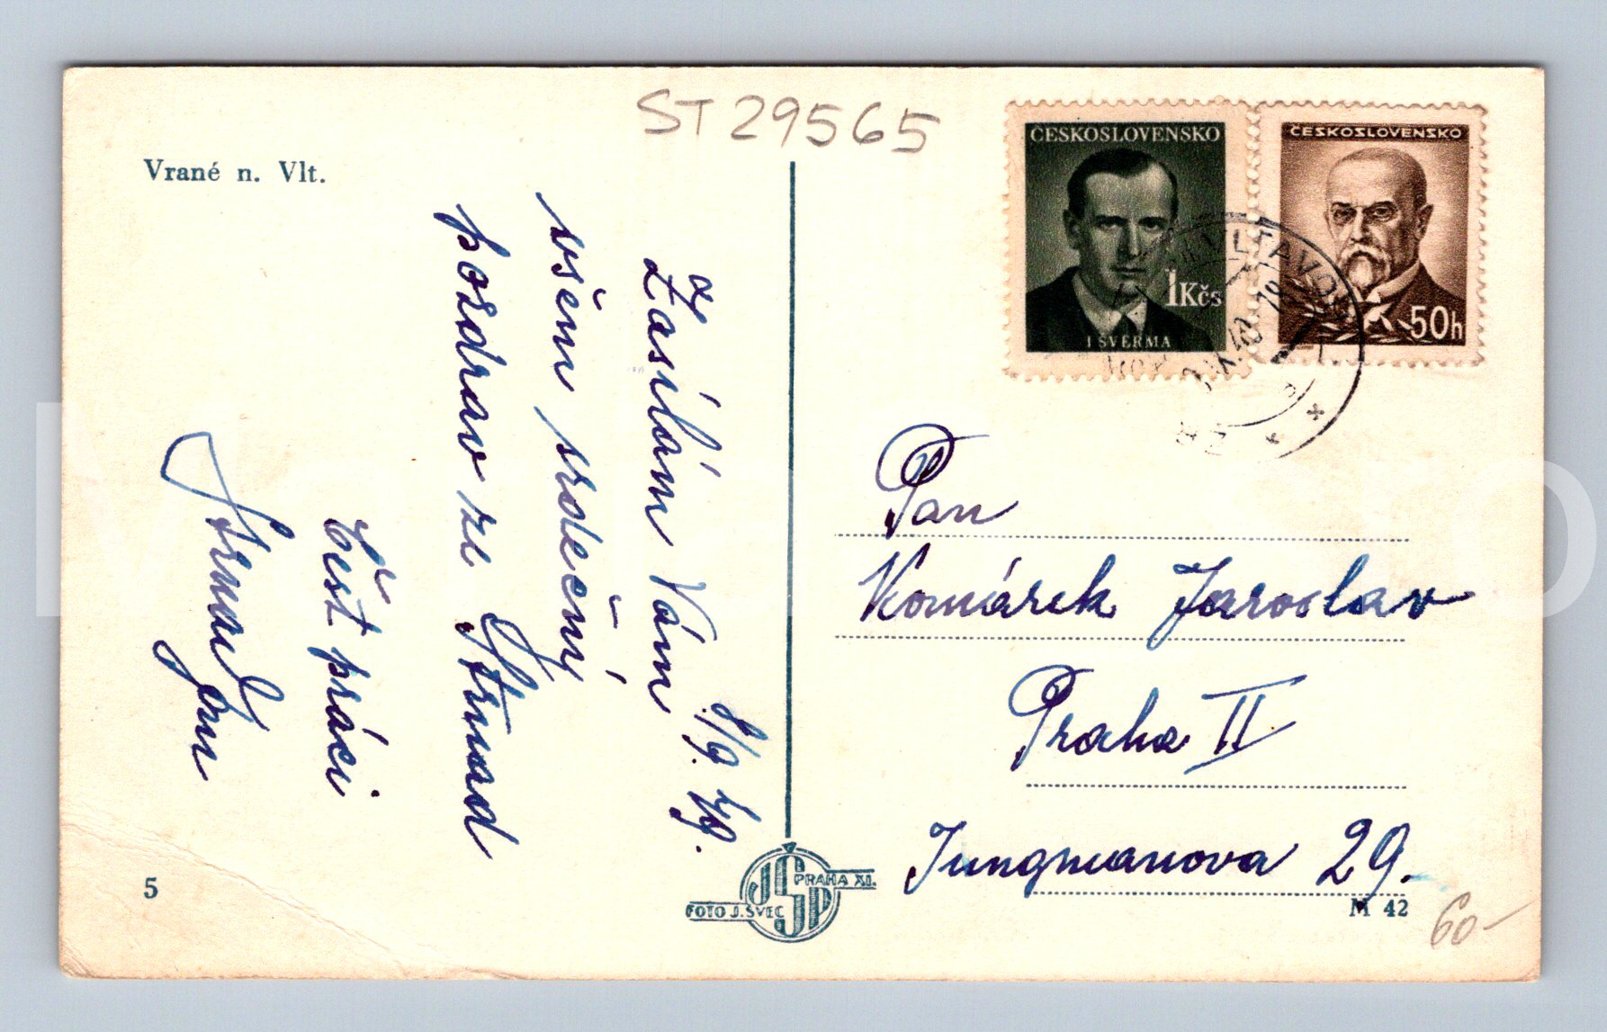 ST 29565
Vrané n. Vlt.
8/9. 49.
Zasílám Vám
všem srdečný
pozdrav ze Strnad
Čest práci
Strnad Jan
ČESKOSLOVENSKO
1Kčs
I ŠVERMA
ČESKOSLOVENSKO
50h
VLTAVOU
Pan
Komárek Jaroslav
Praha II
Jungmanova 29.
5
FOTO J. ŠVEC
JŠP
PRAHA XI.
M 42
60-